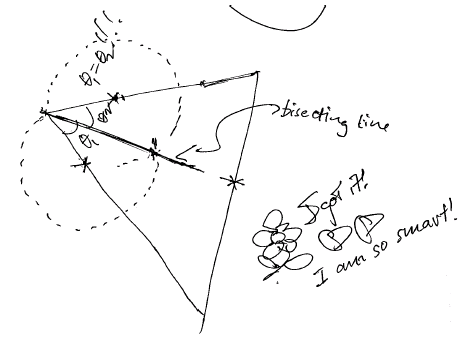 θ₁=θ₂!!
θ₂
θ₁
bisecting line
I got it!
I am so smart!